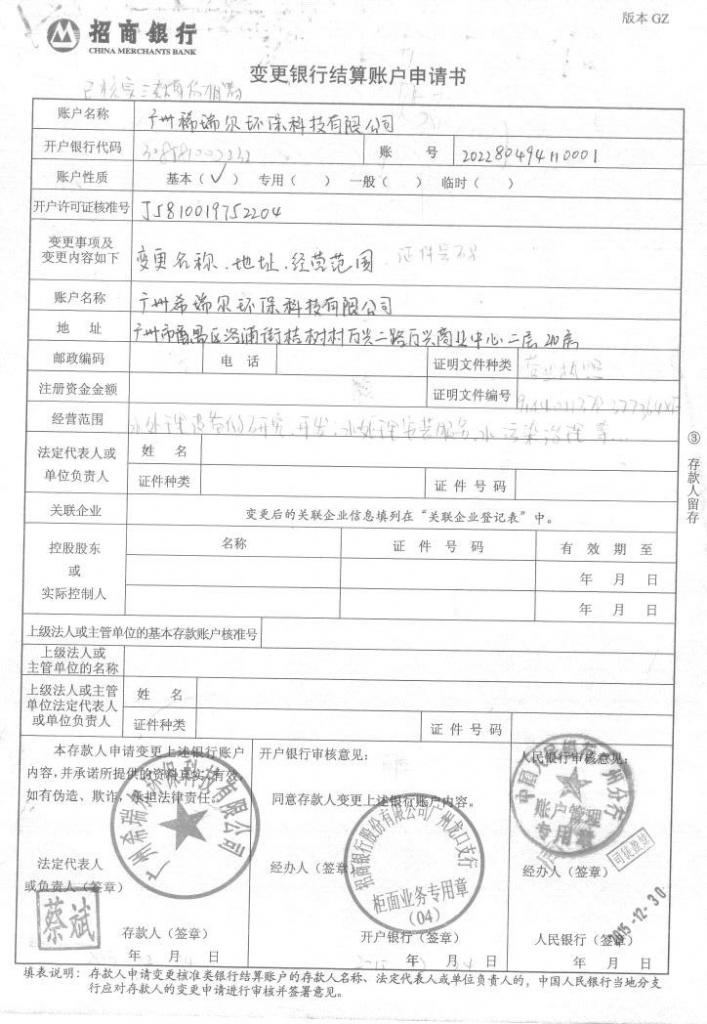 版本 GZ
招商银行
CHINA MERCHANTS BANK
变更银行结算账户申请书
账户名称 广州稀瑞尔环保科技有限公司
开户银行代码 账号 202280494110001
账户性质 基本(√) 专用( ) 一般( ) 临时( )
开户许可证核准号 J5810019752204
变更事项及
变更内容如下 变更名称、地址、经营范围
账户名称 广州希瑞尔环保科技有限公司
地址 广州市番禺区洛浦街桔树村万兴二路万兴商业中心二层210房
邮政编码 电话 证明文件种类 营业执照
注册资金金额 证明文件编号
经营范围 水处理设备的研究、开发;水处理安装服务;水污染治理等
法定代表人或
单位负责人 姓名
证件种类 证件号码
关联企业 变更后的关联企业信息填列在“关联企业登记表”中。
控股股东
或
实际控制人 名称 证件号码 有效期至
年 月 日
年 月 日
上级法人或主管单位的基本存款账户核准号
上级法人或
主管单位的名称
上级法人或主管
单位法定代表人
或单位负责人 姓名
证件种类 证件号码
③存款人留存
本存款人申请变更上述银行账户
内容,并承诺所提供的资料真实、有效,
如有伪造、欺诈,承担法律责任。
法定代表人
或负责人(签章)
存款人(签章)
年 月 日
广州希瑞尔环保科技有限公司
蔡斌
开户银行审核意见:
同意存款人变更上述银行账户内容。
经办人(签章)
开户银行(签章)
年 月 日
招商银行股份有限公司广州
支行
柜面业务专用章
(04)
人民银行审核意见:
经办人(签章)
人民银行(签章)
年 月 日
中国人民银行广州分行
账户管理
专用章
2015-12-30
填表说明:存款人申请变更核准类银行结算账户的存款人名称、法定代表人或单位负责人的,中国人民银行当地分支
行应对存款人的变更申请进行审核并签署意见。